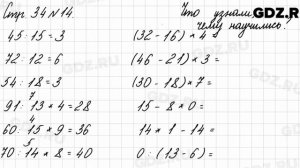 Стр 34 № 14.
Что узнали,
GDZ.RU
чему научились?
45 : 15 = 3
(32 - 16) * 4
72 : 12 = 6
(46 - 21) * 3 =
54 : 18 = 3
(30 - 18) * 7 =
7
91 : 13 * 4 = 28
15 - 8 * 0 =
4
60 : 15 * 9 = 36
14 * 1 - 14 =
5
70 : 14 * 8 = 40
0 : (13 - 6) :